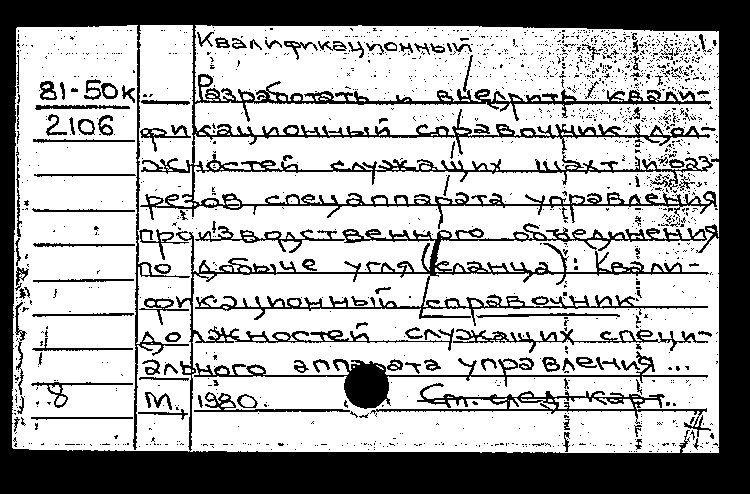 Квалификационный
81-50к
2106
Разработать и внедрить квали-
фикационный справочник дол-
жностей служащих шахт и раз-
резов, спецаппарата управления
производственного объединения
по добыче угля (сланца): Квали-
фикационный справочник
должностей служащих специ-
ального аппарата управления...
8
М., 1980. См. след. карт.